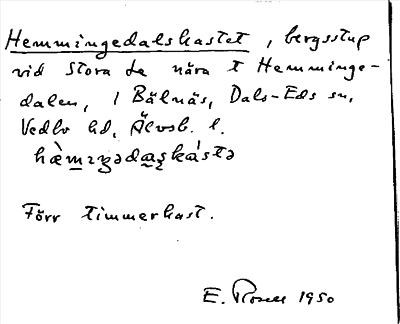 Hemmingedalskastet, bergsstup
vid Stora Le nära t Hemminge-
dalen, i Bälnäs, Dals-Eds sn,
Vedbo hd, Älvsb. l.
hæ̀mıŋədaskástə
Förr timmerkast.
E. Rosell 1950